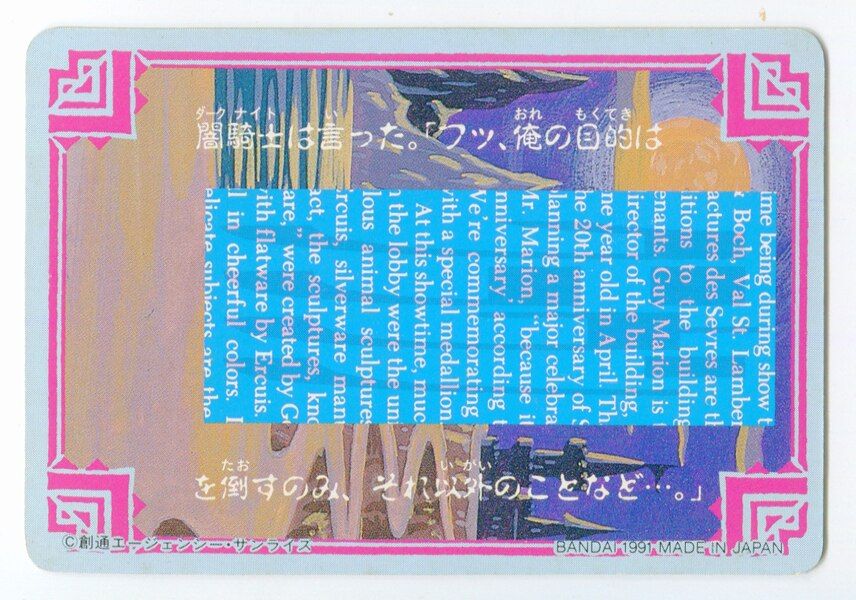 闇騎士は言った。「フッ、俺の目的は
ime being during show t
Boch, Val St. Lamber
actures des Sevres are th
itions to the building
enants. Guy Marion is
irector of the building,
ne year old in April. Th
he 20th anniversary of S
lanning a major celebra
Mr. Marion, “because i
nniversary,” according t
We’re commemorating
with a special medallion
At this showtime, muc
n the lobby were the un
lous animal sculptures
rcuis, silverware man
act, the sculptures, kno
are,” were created by G
with flatware by Ercuis.
l in cheerful colors. I
elicate subjects are the
を倒すのみ、それ以外のことなど…。」
©創通エージェンシー・サンライズ
BANDAI 1991 MADE IN JAPAN